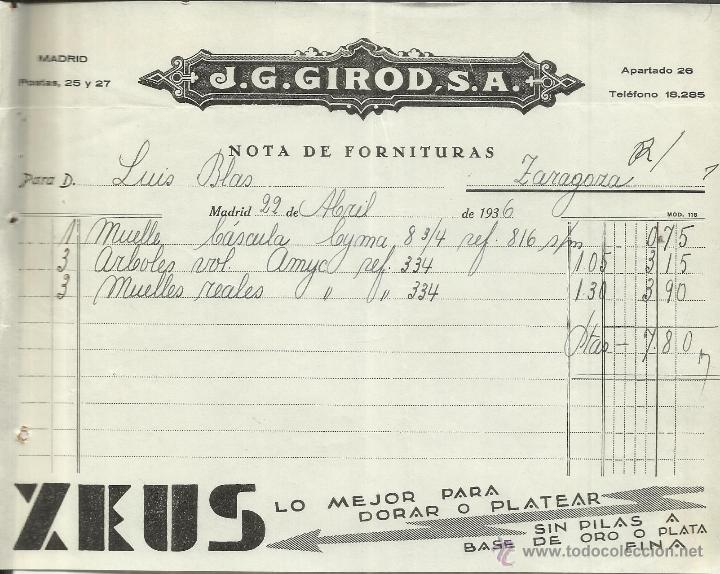 MADRID
Postas, 25 y 27
J. G. GIROD, S. A.
Apartado 26
Teléfono 18.285
NOTA DE FORNITURAS
Para D. Luis Blas Zaragoza
Madrid 22 de Abril de 1936
MOD. 118
1 Muelle báscula Cyma 8 3/4 ref. 816 s/m - 0.75
3 Arboles vol. Amyc ref. 334 1.05 3 15
3 Muelles reales " " 334 1.30 3 90
Ptas - 7.80
ZEUS
LO MEJOR PARA
DORAR O PLATEAR
SIN PILAS A
BASE DE ORO O PLATA
FINA
© todocoleccion.net